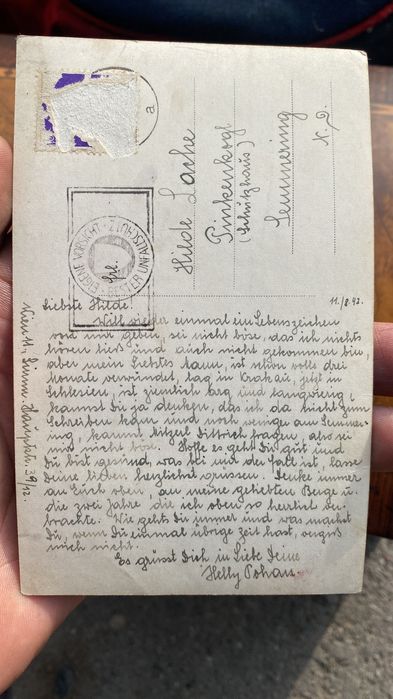 a
EIGENE VORSICHT - BESTER UNFALLSCHUTZ
Hilde Lache
Pinkenkogl
(Schutzhaus)
Semmering
N. D.
11./8.43.
Liebste Hilde.
Will wieder einmal ein Lebenszeichen
von mir geben, sei nicht böse, das ich nichts
hören ließ und auch nicht gekommen bin,
aber mein Liebster kam, ist schon volle drei
Monate verwundet, lag in Krakau, jetzt in
Schlesien, ist ziemlich arg und langwierig,
kannst Dir ja denken, das ich da nicht zum
Schreiben kam und noch weniger am Semmer-
ing, kannst Mitzerl Dittrich fragen, also sei
mir nicht böse. Hoffe es geht Dir gut und
Du bist gesund, was bei mir der Fall ist, lasse
Deine lieben herzlichst grüssen. Denke immer
an Euch oben, an meine geliebten Berge u.
die zwei Jahre die ich oben so herrlich ver-
brachte. Wie gehts Dir immer und was machst
Du, wenn Du einmal übrige Zeit hast, vergiß
mich nicht.
Es grüsst Dich in Liebe Deine
Helly Pohan.
Wien 11., Simm. Hauptstr. 39/12.